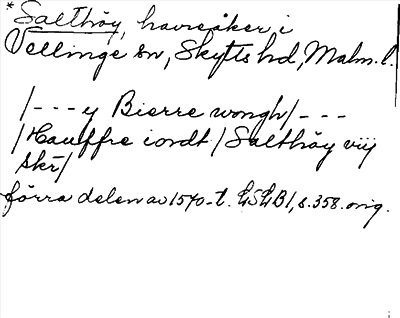 *Salthöy, havreåker i
Vellinge sn, Skytts hd, Malm. l.
/---y Bierre wongh/---
/Hauffre iordt/Salthöy viij
skr̄/
förra delen av 1570-t. LSLB1, s. 358. orig.